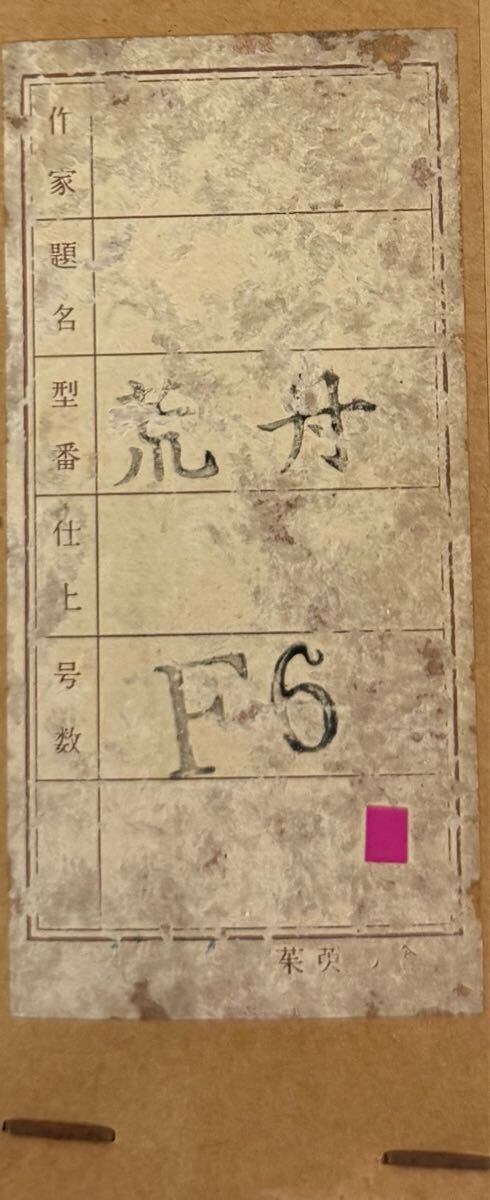 作家
題名
型番 荒丹
仕上
号数 F6